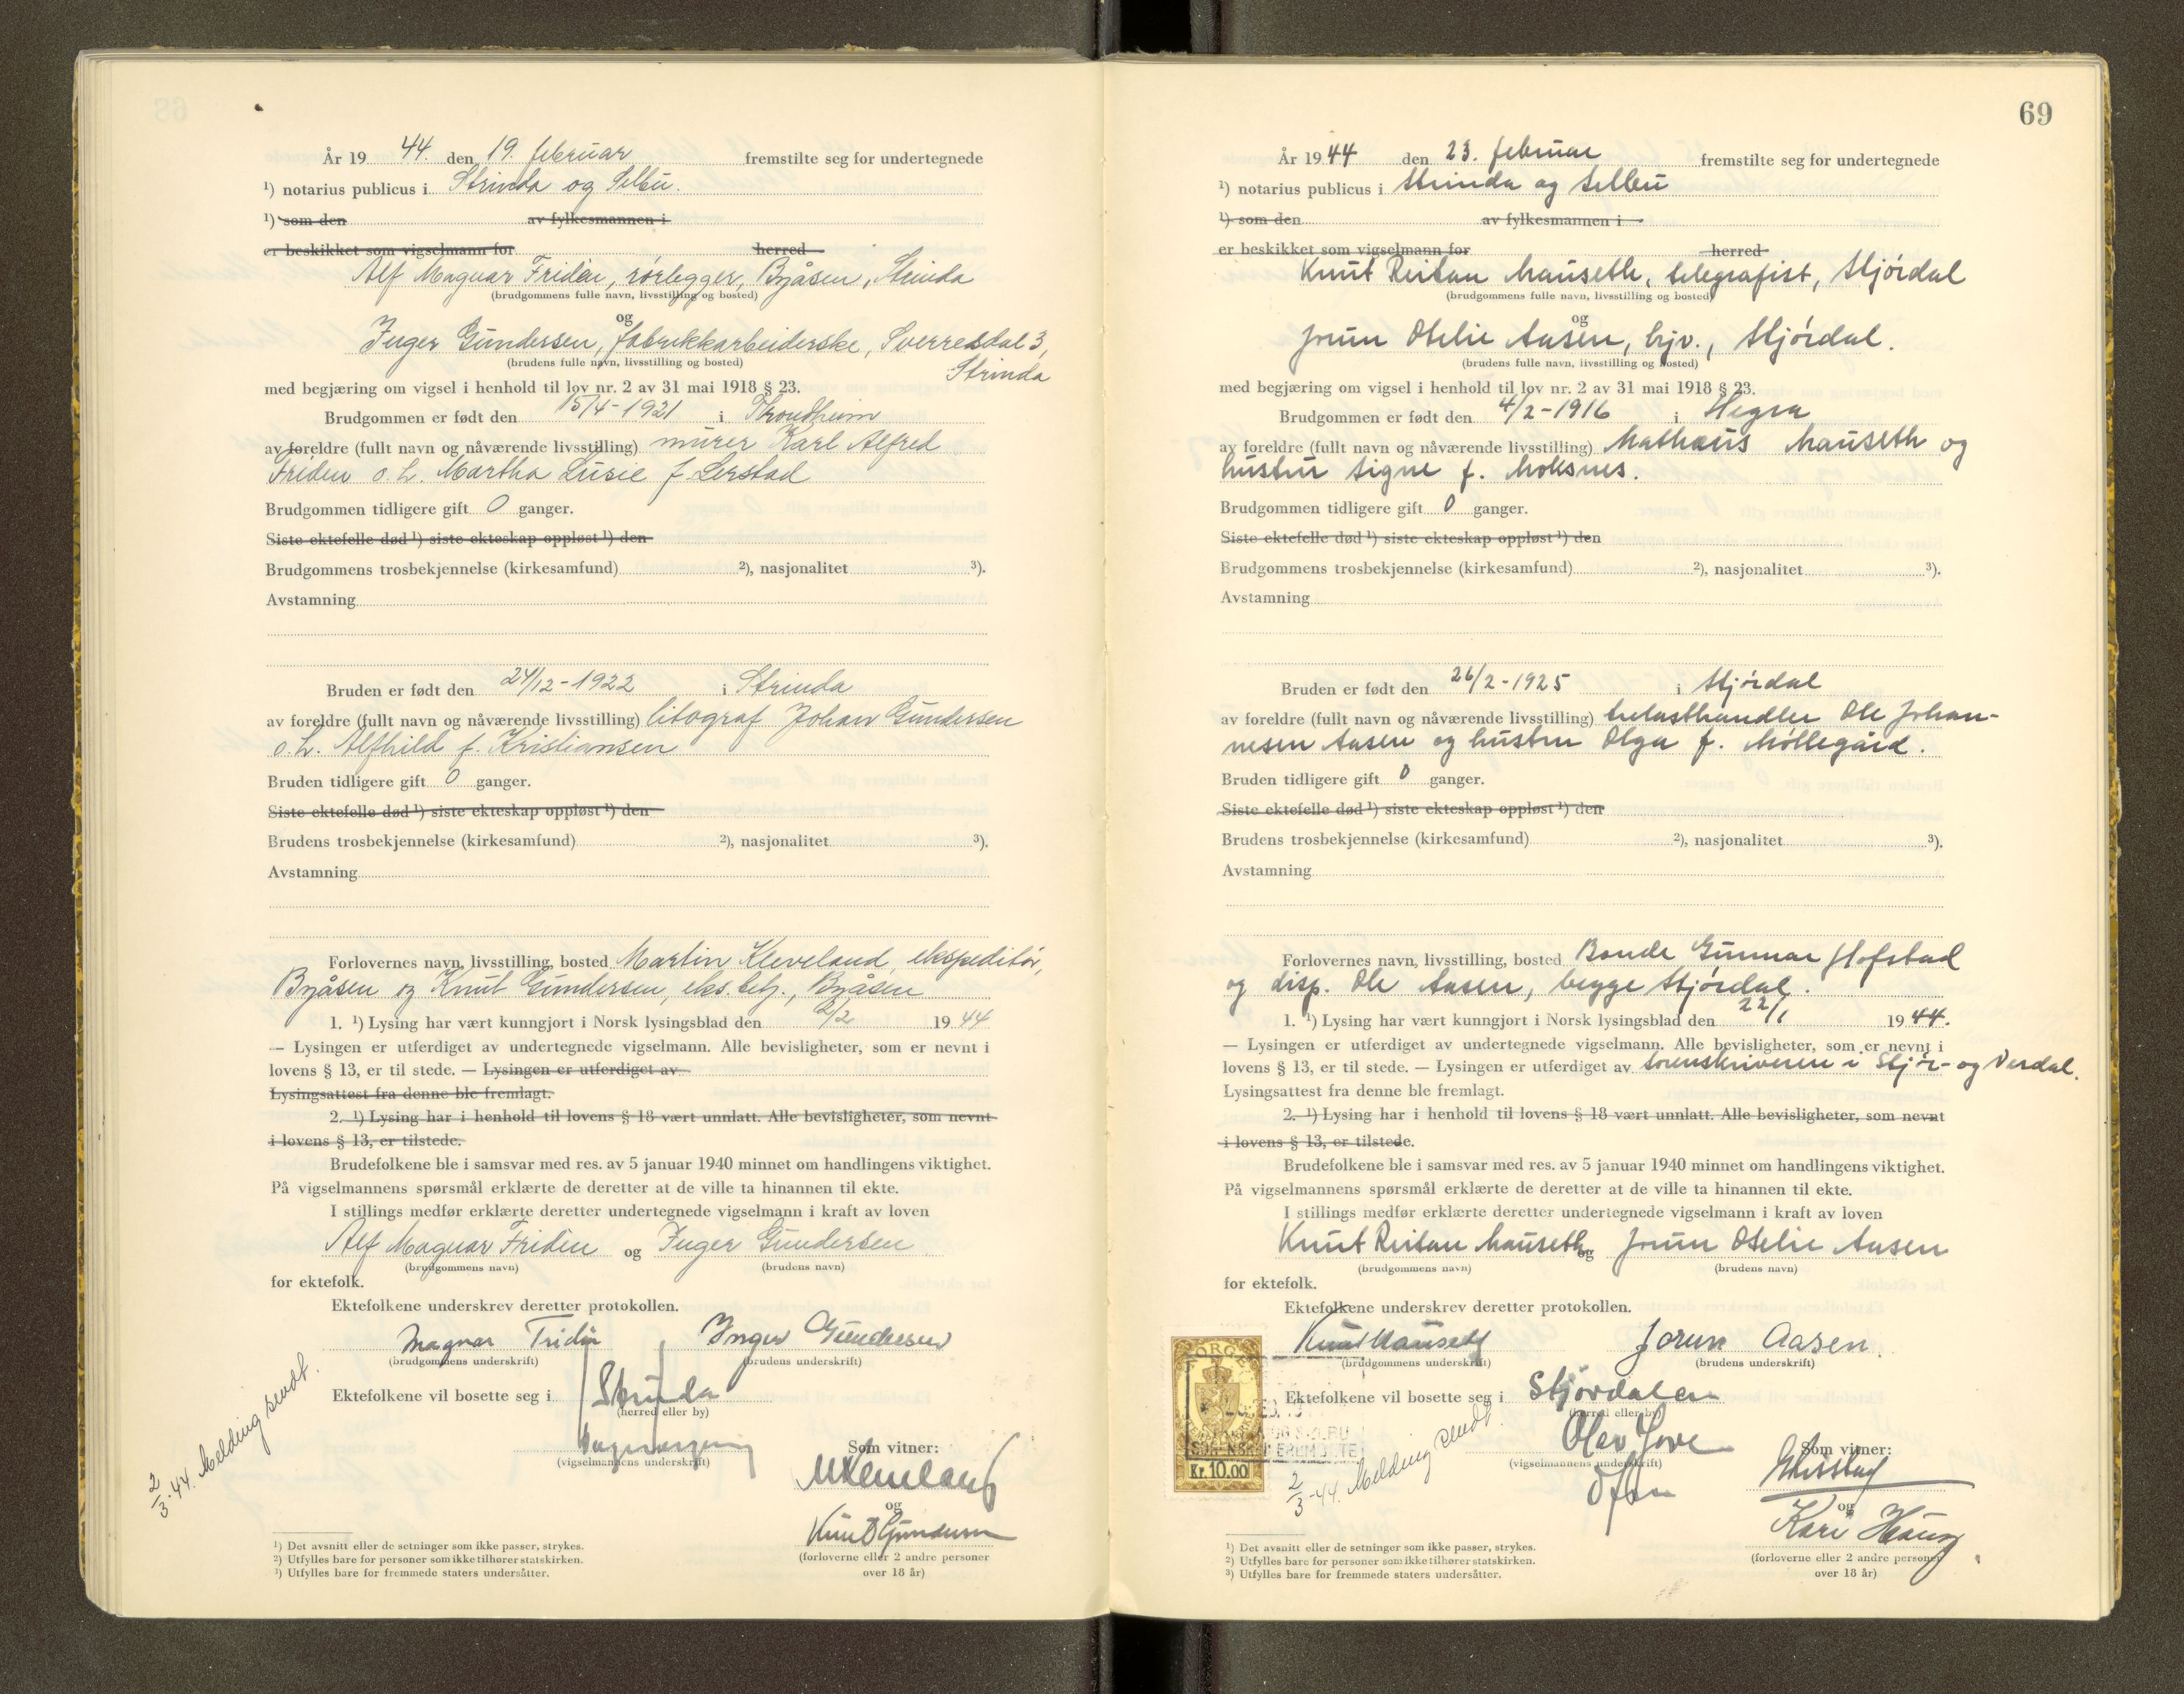 År 19 44. den 19. februar fremstilte seg for undertegnede
¹) notarius publicus i Strinda og Selbu.
¹) som den av fylkesmannen i
er beskikket som vigselmann for herred
Alf Magnar Fridén, rørlegger, Byåsen, Strinda
(brudgommens fulle navn, livsstilling og bosted)
og
Inger Gundersen, fabrikkarbeiderske, Sverresdal 3,
(brudens fulle navn, livsstilling og bosted)
Strinda
med begjæring om vigsel i henhold til lov nr. 2 av 31 mai 1918 § 23.
Brudgommen er født den 15/4-1921 i Trondheim
av foreldre (fullt navn og nåværende livsstilling) murer Karl Alfred
Fridén o. h. Martha Lusie f. Lerstad
Brudgommen tidligere gift 0 ganger.
Siste ektefelle død ¹) siste ekteskap oppløst ¹) den
Brudgommens trosbekjennelse (kirkesamfund) ²), nasjonalitet ³).
Avstamning
Bruden er født den 24/12-1922 i Strinda
av foreldre (fullt navn og nåværende livsstilling) litograf Johan Gundersen
o. h. Alfhild f. Kristiansen
Bruden tidligere gift 0 ganger.
Siste ektefelle død ¹) siste ekteskap oppløst ¹) den
Brudens trosbekjennelse (kirkesamfund) ²), nasjonalitet ³).
Avstamning
Forlovernes navn, livsstilling, bosted Martin Kleveland, ekspeditør,
Byåsen og Knut Gundersen, eks. betj., Byåsen
1. ¹) Lysing har vært kunngjort i Norsk lysingsblad den 2/2 19 44
— Lysingen er utferdiget av undertegnede vigselmann. Alle bevisligheter, som er nevnt i
lovens § 13, er til stede. — Lysingen er utferdiget av
Lysingsattest fra denne ble fremlagt.
2. ¹) Lysing har i henhold til lovens § 18 vært unnlatt. Alle bevisligheter, som nevnt
i lovens § 13, er tilstede.
Brudefolkene ble i samsvar med res. av 5 januar 1940 minnet om handlingens viktighet.
På vigselmannens spørsmål erklærte de deretter at de ville ta hinannen til ekte.
I stillings medfør erklærte deretter undertegnede vigselmann i kraft av loven
Alf Magnar Fridén og Inger Gundersen
(brudgommens navn) (brudens navn)
for ektefolk.
Ektefolkene underskrev deretter protokollen.
Magnar Fridén Inger Gundersen
(brudgommens underskrift) (brudens underskrift)
Ektefolkene vil bosette seg i Strinda
(herred eller by)
2/3-44. Melding sendt.
Som vitner:
(vigselmannens underskrift)
M Kleveland
og
Knut Gundersen
(forloverne eller 2 andre personer
over 18 år)
¹) Det avsnitt eller de setninger som ikke passer, strykes.
²) Utfylles bare for personer som ikke tilhører statskirken.
³) Utfylles bare for fremmede staters undersåtter.
69
År 19 44 den 23. februar fremstilte seg for undertegnede
¹) notarius publicus i Strinda og Selbu
¹) som den av fylkesmannen i
er beskikket som vigselmann for herred
Knut Reitan Mauseth, telegrafist, Stjørdal
(brudgommens fulle navn, livsstilling og bosted)
og
Jorun Otelie Aasen, hjv., Stjørdal.
(brudens fulle navn, livsstilling og bosted)
med begjæring om vigsel i henhold til lov nr. 2 av 31 mai 1918 § 23.
Brudgommen er født den 4/2-1916 i Hegra
av foreldre (fullt navn og nåværende livsstilling) Mathæus Mauseth og
hustru Signe f. Moksnes.
Brudgommen tidligere gift 0 ganger.
Siste ektefelle død ¹) siste ekteskap oppløst ¹) den
Brudgommens trosbekjennelse (kirkesamfund) ²), nasjonalitet ³).
Avstamning
Bruden er født den 26/2-1925 i Stjørdal
av foreldre (fullt navn og nåværende livsstilling) trelasthandler Ole Johan-
nesen Aasen og hustru Olga f. Møllegård.
Bruden tidligere gift 0 ganger.
Siste ektefelle død ¹) siste ekteskap oppløst ¹) den
Brudens trosbekjennelse (kirkesamfund) ²), nasjonalitet ³).
Avstamning
Forlovernes navn, livsstilling, bosted Bonde Gunnar Hofstad
og disp. Ole Aasen, begge Stjørdal.
1. ¹) Lysing har vært kunngjort i Norsk lysingsblad den 22/1 19 44.
— Lysingen er utferdiget av undertegnede vigselmann. Alle bevisligheter, som er nevnt i
lovens § 13, er til stede. — Lysingen er utferdiget av sorenskriveren i Stjør- og Verdal.
Lysingsattest fra denne ble fremlagt.
2. ¹) Lysing har i henhold til lovens § 18 vært unnlatt. Alle bevisligheter, som nevnt
i lovens § 13, er tilstede.
Brudefolkene ble i samsvar med res. av 5 januar 1940 minnet om handlingens viktighet.
På vigselmannens spørsmål erklærte de deretter at de ville ta hinannen til ekte.
I stillings medfør erklærte deretter undertegnede vigselmann i kraft av loven
Knut Reitan Mauseth og Jorun Otelie Aasen
(brudgommens navn) (brudens navn)
for ektefolk.
Ektefolkene underskrev deretter protokollen.
Knut Mauseth Jorun Aasen.
(brudgommens underskrift) (brudens underskrift)
Ektefolkene vil bosette seg i Stjørdalen
(herred eller by)
NORGE
Kr. 10.00
2/3-44. Melding sendt.
Som vitner:
(vigselmannens underskrift)
og
Kari Haug
(forloverne eller 2 andre personer
over 18 år)
¹) Det avsnitt eller de setninger som ikke passer, strykes.
²) Utfylles bare for personer som ikke tilhører statskirken.
³) Utfylles bare for fremmede staters undersåtter.